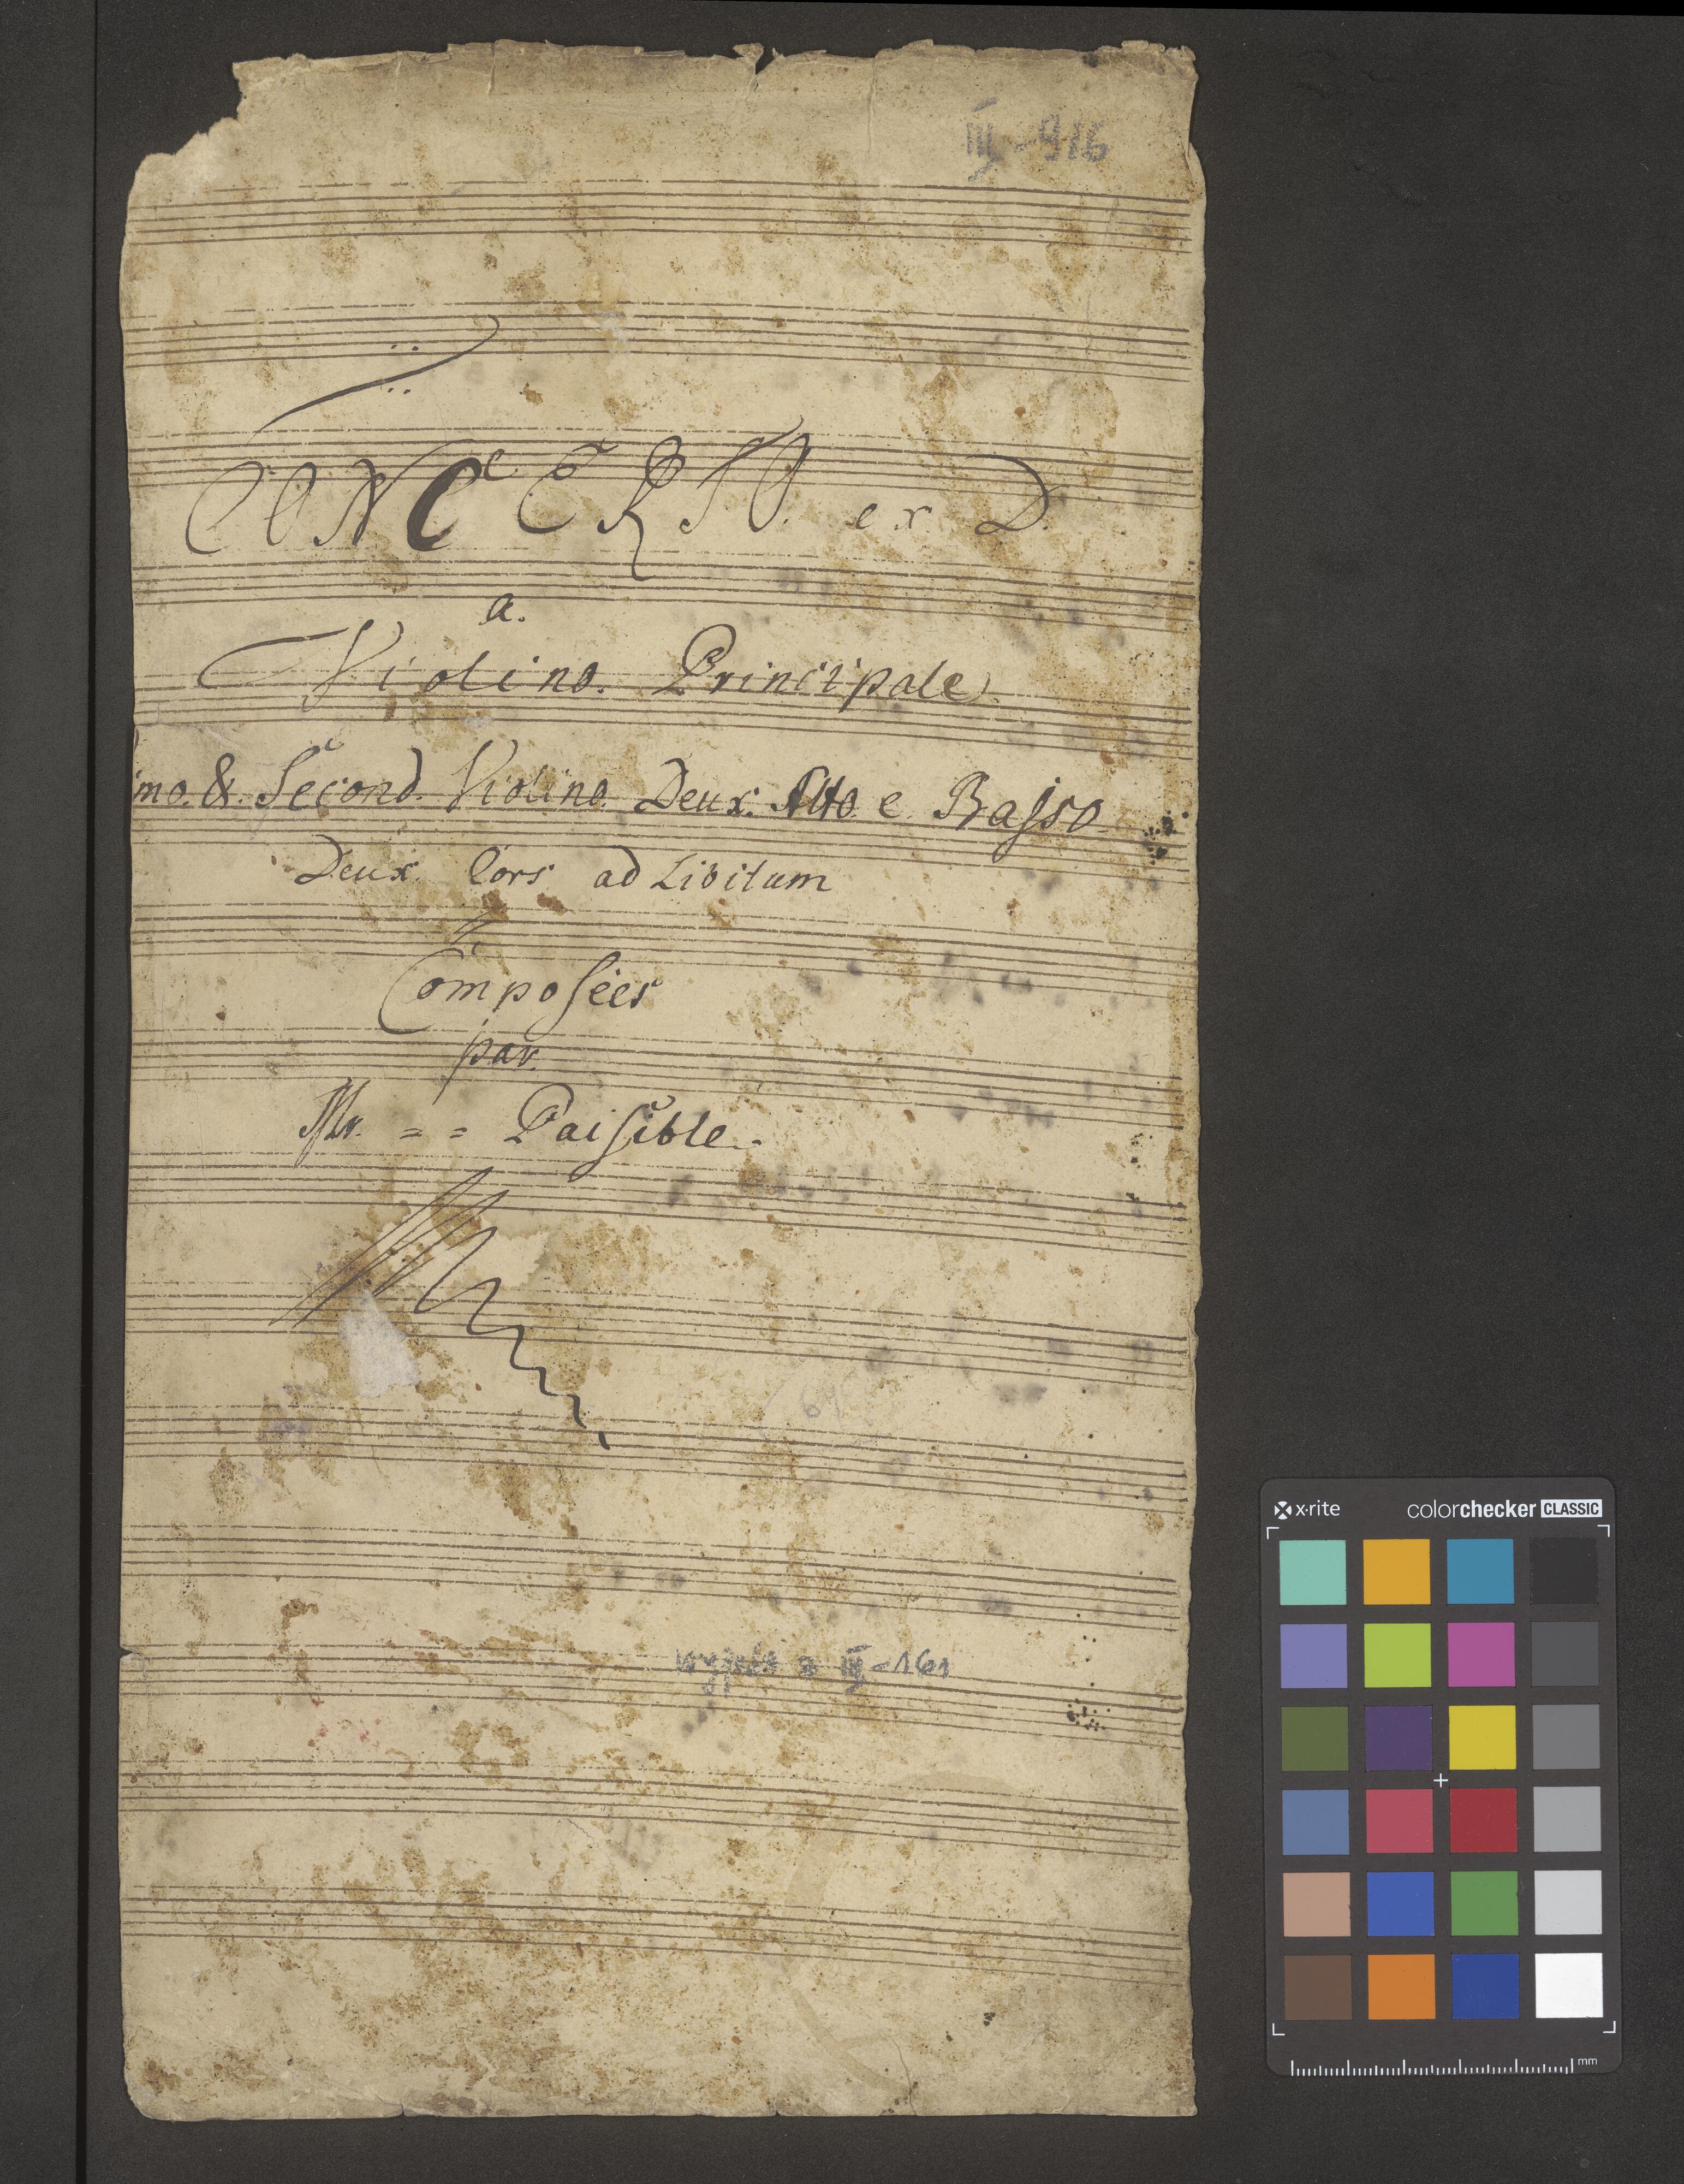 III - 916
CONCERTO. ex D.
a.
Violino. Principale
imo. &. Second. Violino. Deux. Alto. e Basso.
Deux. Cors ad Libitum
Composées
par.
Mr. = = Paisible.
wyjęte z III - 161
x·rite colorchecker CLASSIC
mm